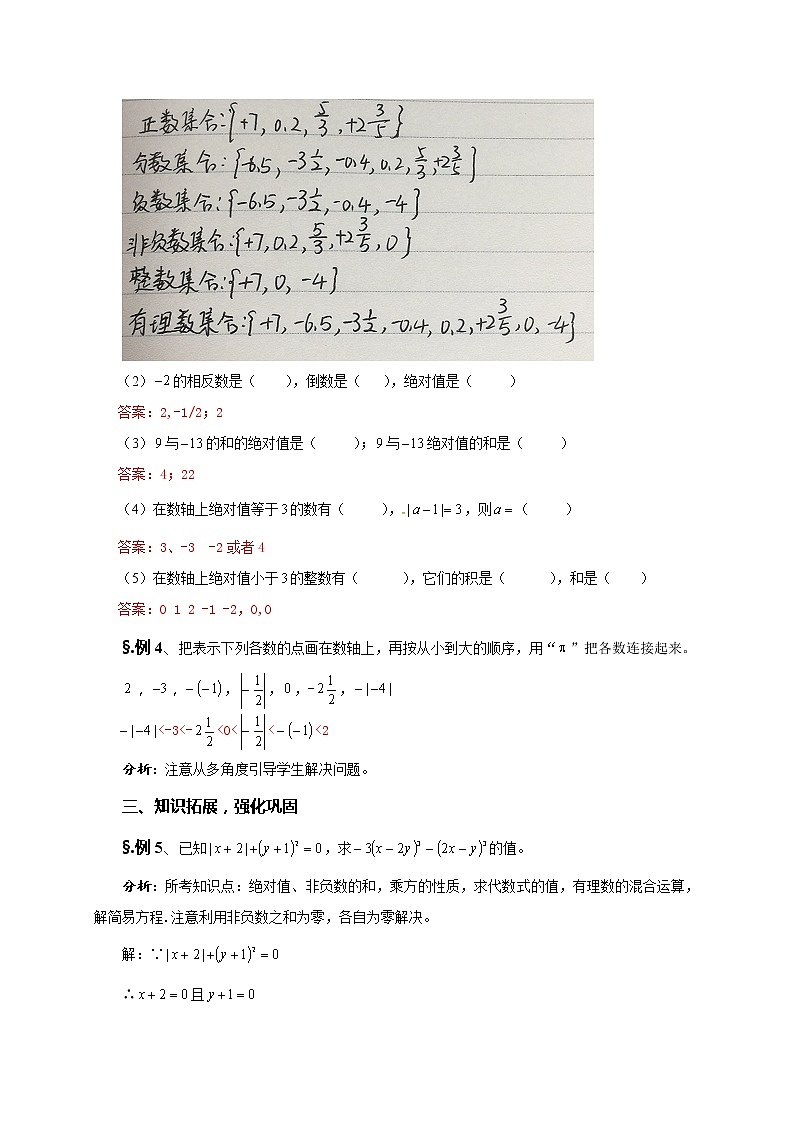 正数集合:{+7, 0.2, 5/3, +2 3/5}
分数集合:{-6.5, -3 1/2, -0.4, 0.2, 5/3, +2 3/5}
负数集合:{-6.5, -3 1/2, -0.4, -4}
非负数集合:{+7, 0.2, 5/3, +2 3/5, 0}
整数集合:{+7, 0, -4}
有理数集合:{+7, -6.5, -3 1/2, -0.4, 0.2, +2 3/5, 0, -4}
(2) −2的相反数是( ),倒数是( ),绝对值是( )
答案:2,-1/2;2
(3) 9与−13的和的绝对值是( );9与−13绝对值的和是( )
答案:4;22
(4)在数轴上绝对值等于3的数有( ),|a−1|=3,则a=( )
答案:3、-3 -2或者4
(5)在数轴上绝对值小于3的整数有( ),它们的积是( ),和是( )
答案:0 1 2 -1 -2,0,0
§.例4、把表示下列各数的点画在数轴上,再按从小到大的顺序,用“π”把各数连接起来。
2,−3,−(−1),|−1/2|,0,−2 1/2,−|−4|
−|−4|<-3<−2 1/2<0<|−1/2|<−(−1)<2
分析:注意从多角度引导学生解决问题。
三、知识拓展,强化巩固
§.例5、已知|x+2|+(y+1)²=0,求−3(x−2y)³−(2x−y)³的值。
分析:所考知识点:绝对值、非负数的和,乘方的性质,求代数式的值,有理数的混合运算,
解简易方程.注意利用非负数之和为零,各自为零解决。
解:∵|x+2|+(y+1)²=0
∴x+2=0且y+1=0